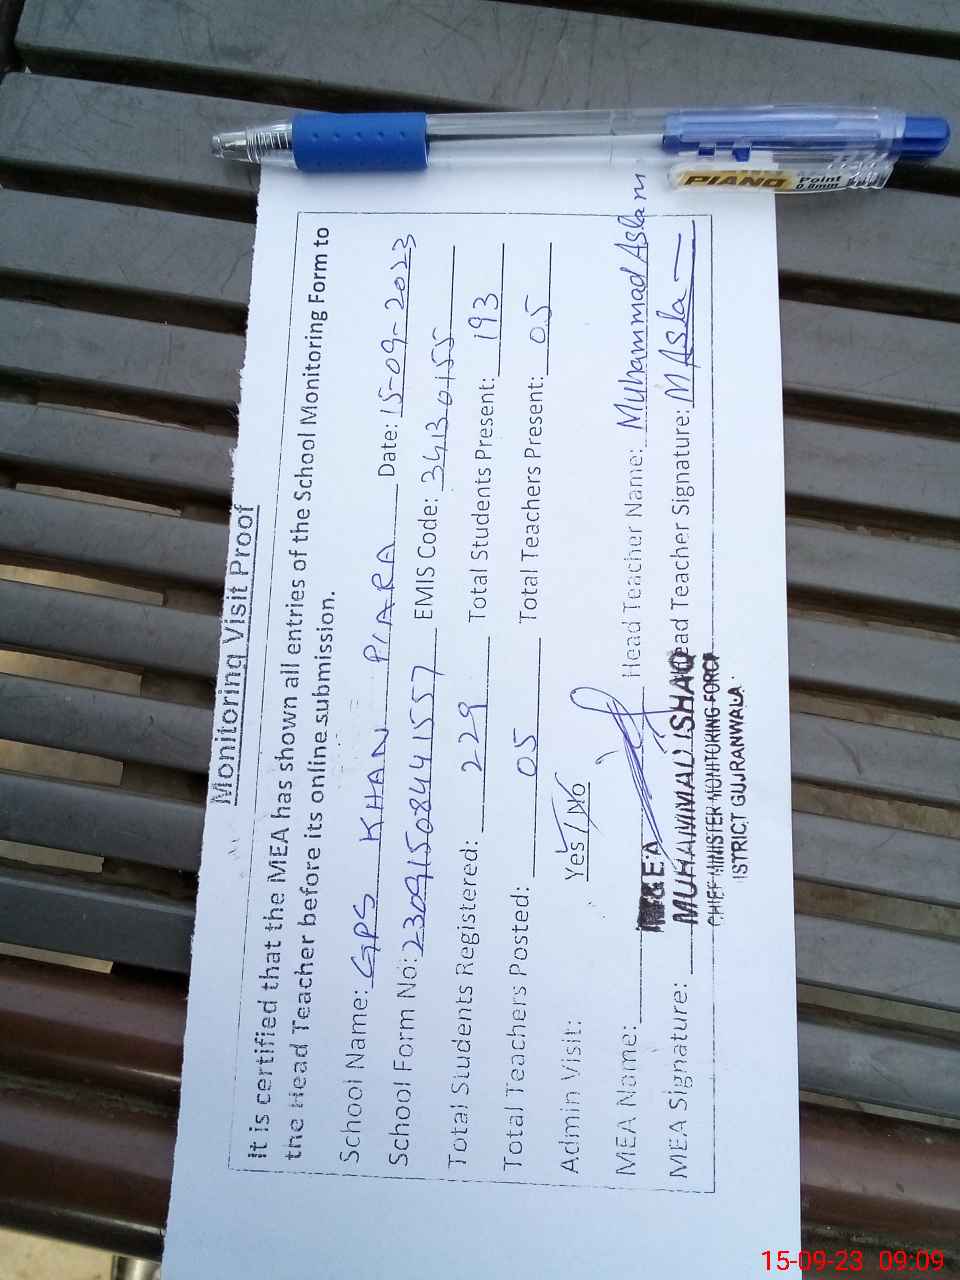 Monitoring Visit Proof
It is certified that the MEA has shown all entries of the School Monitoring Form to
the Head Teacher before its online submission.
School Name: GPS KHAN PIARA Date: 15-09-2023
School Form No: 230915084441557 EMIS Code: 34130155
Total Students Registered: 229 Total Students Present: 193
Total Teachers Posted: 05 Total Teachers Present: 05
Admin Visit: Yes / No
MEA Name: Head Teacher Name: Muhammad Aslam
MEA Signature: Head Teacher Signature: M Asla
M&E.A
MUHAMMAD ISHAQ
CHIEF MINISTER MONITORING FORCE
ISTRICT GUJRANWALA.
PIANO Point
0.8mm
15-09-23 09:09